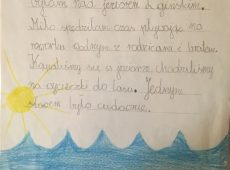 byłam nad jeziorem
Miło spędzałam czas pływając na
rowerku wodnym z rodzicami i bratem.
Kąpaliśmy się w jeziorze chodziliśmy
na wycieczki do lasu. Jednym
słowem było cudownie.